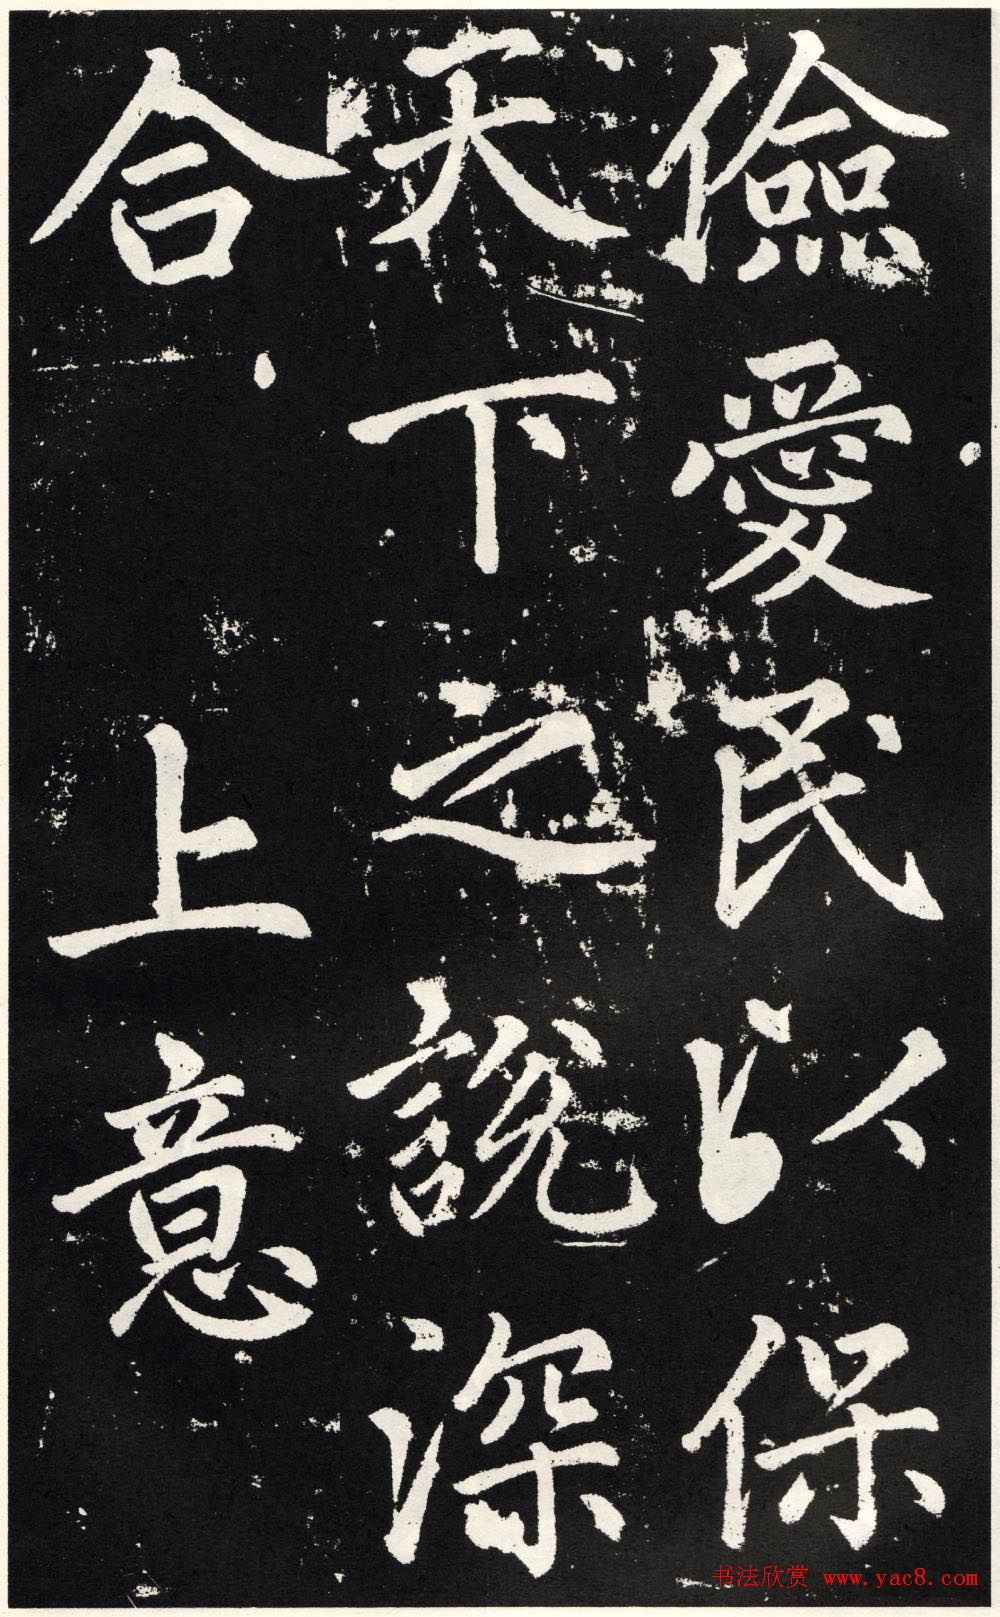 儉愛民以保
天下之說深
合上意
书法欣赏 www.yac8.com